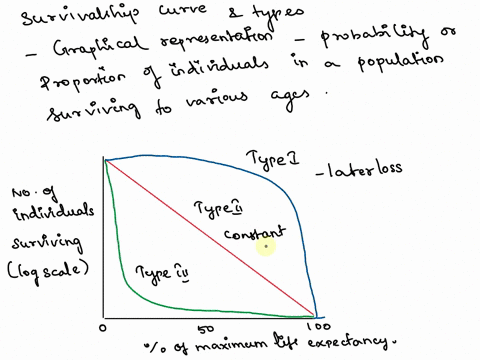 Survivalship curve & types
- Graphical representation - probability or
Proportion of individuals in a population
surviving to various ages.
Type I
- later loss
No. of
individuals
surviving
(log scale)
Type ii
constant
Type iv
0
50
100
% of maximum life expectancy.